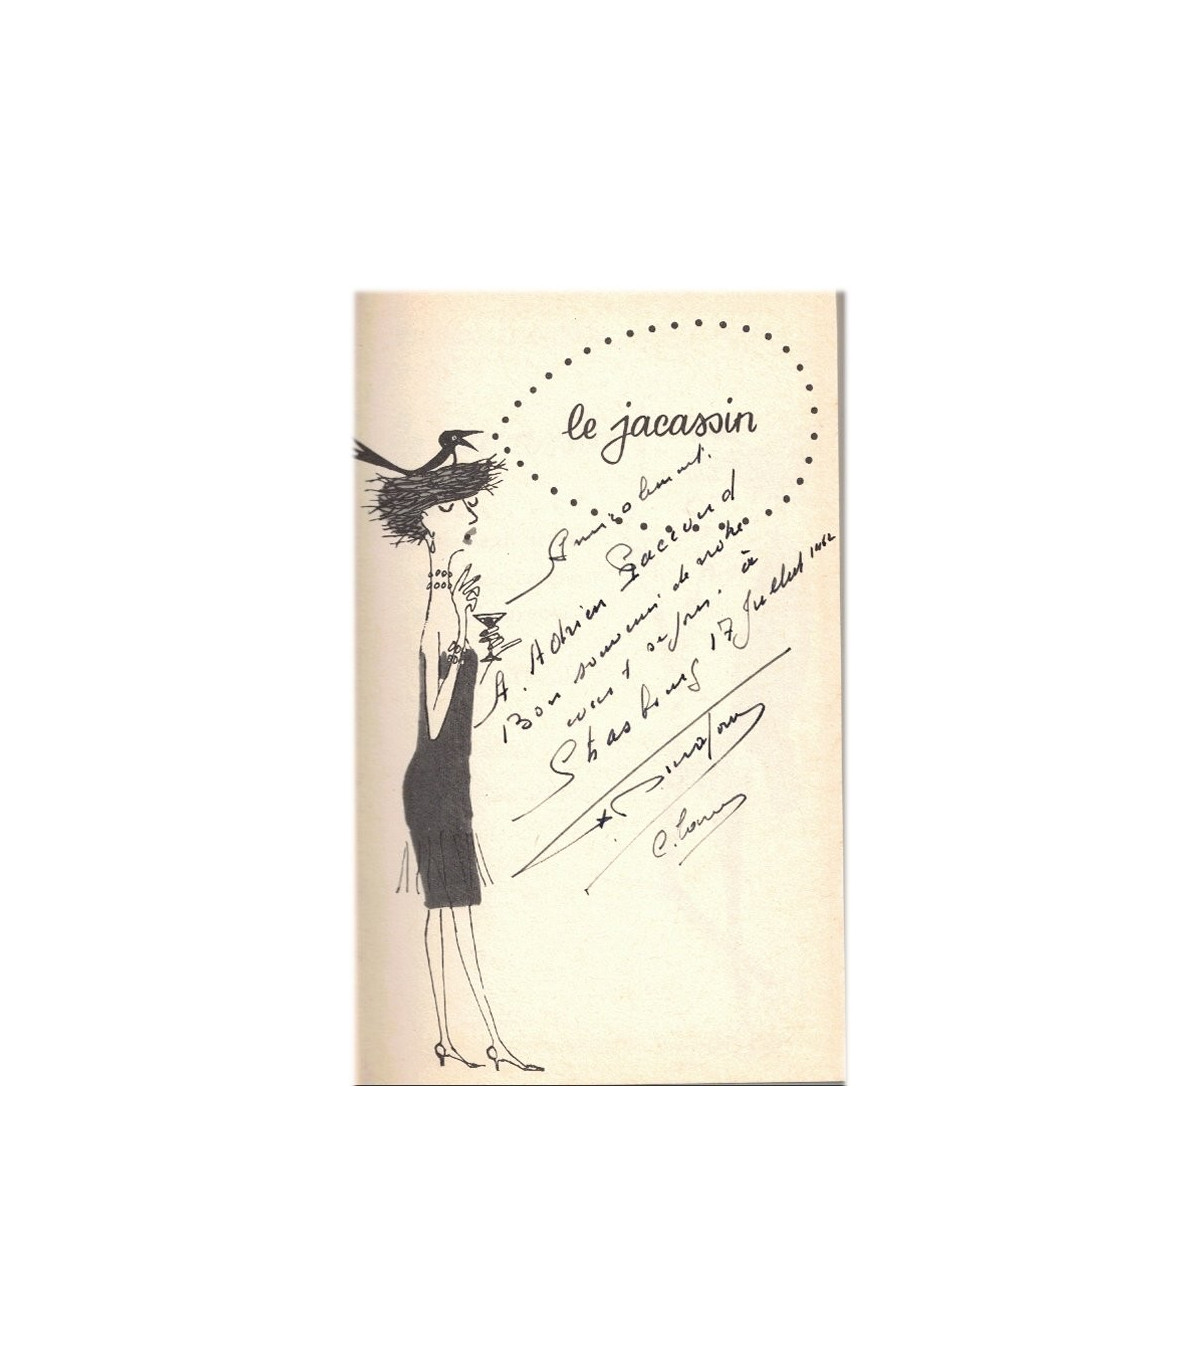 le jacassin
Amicalement.
A. Adrien
Bon souvenir de notre
court séjour. à
Strasbourg 17 Juillet 1962